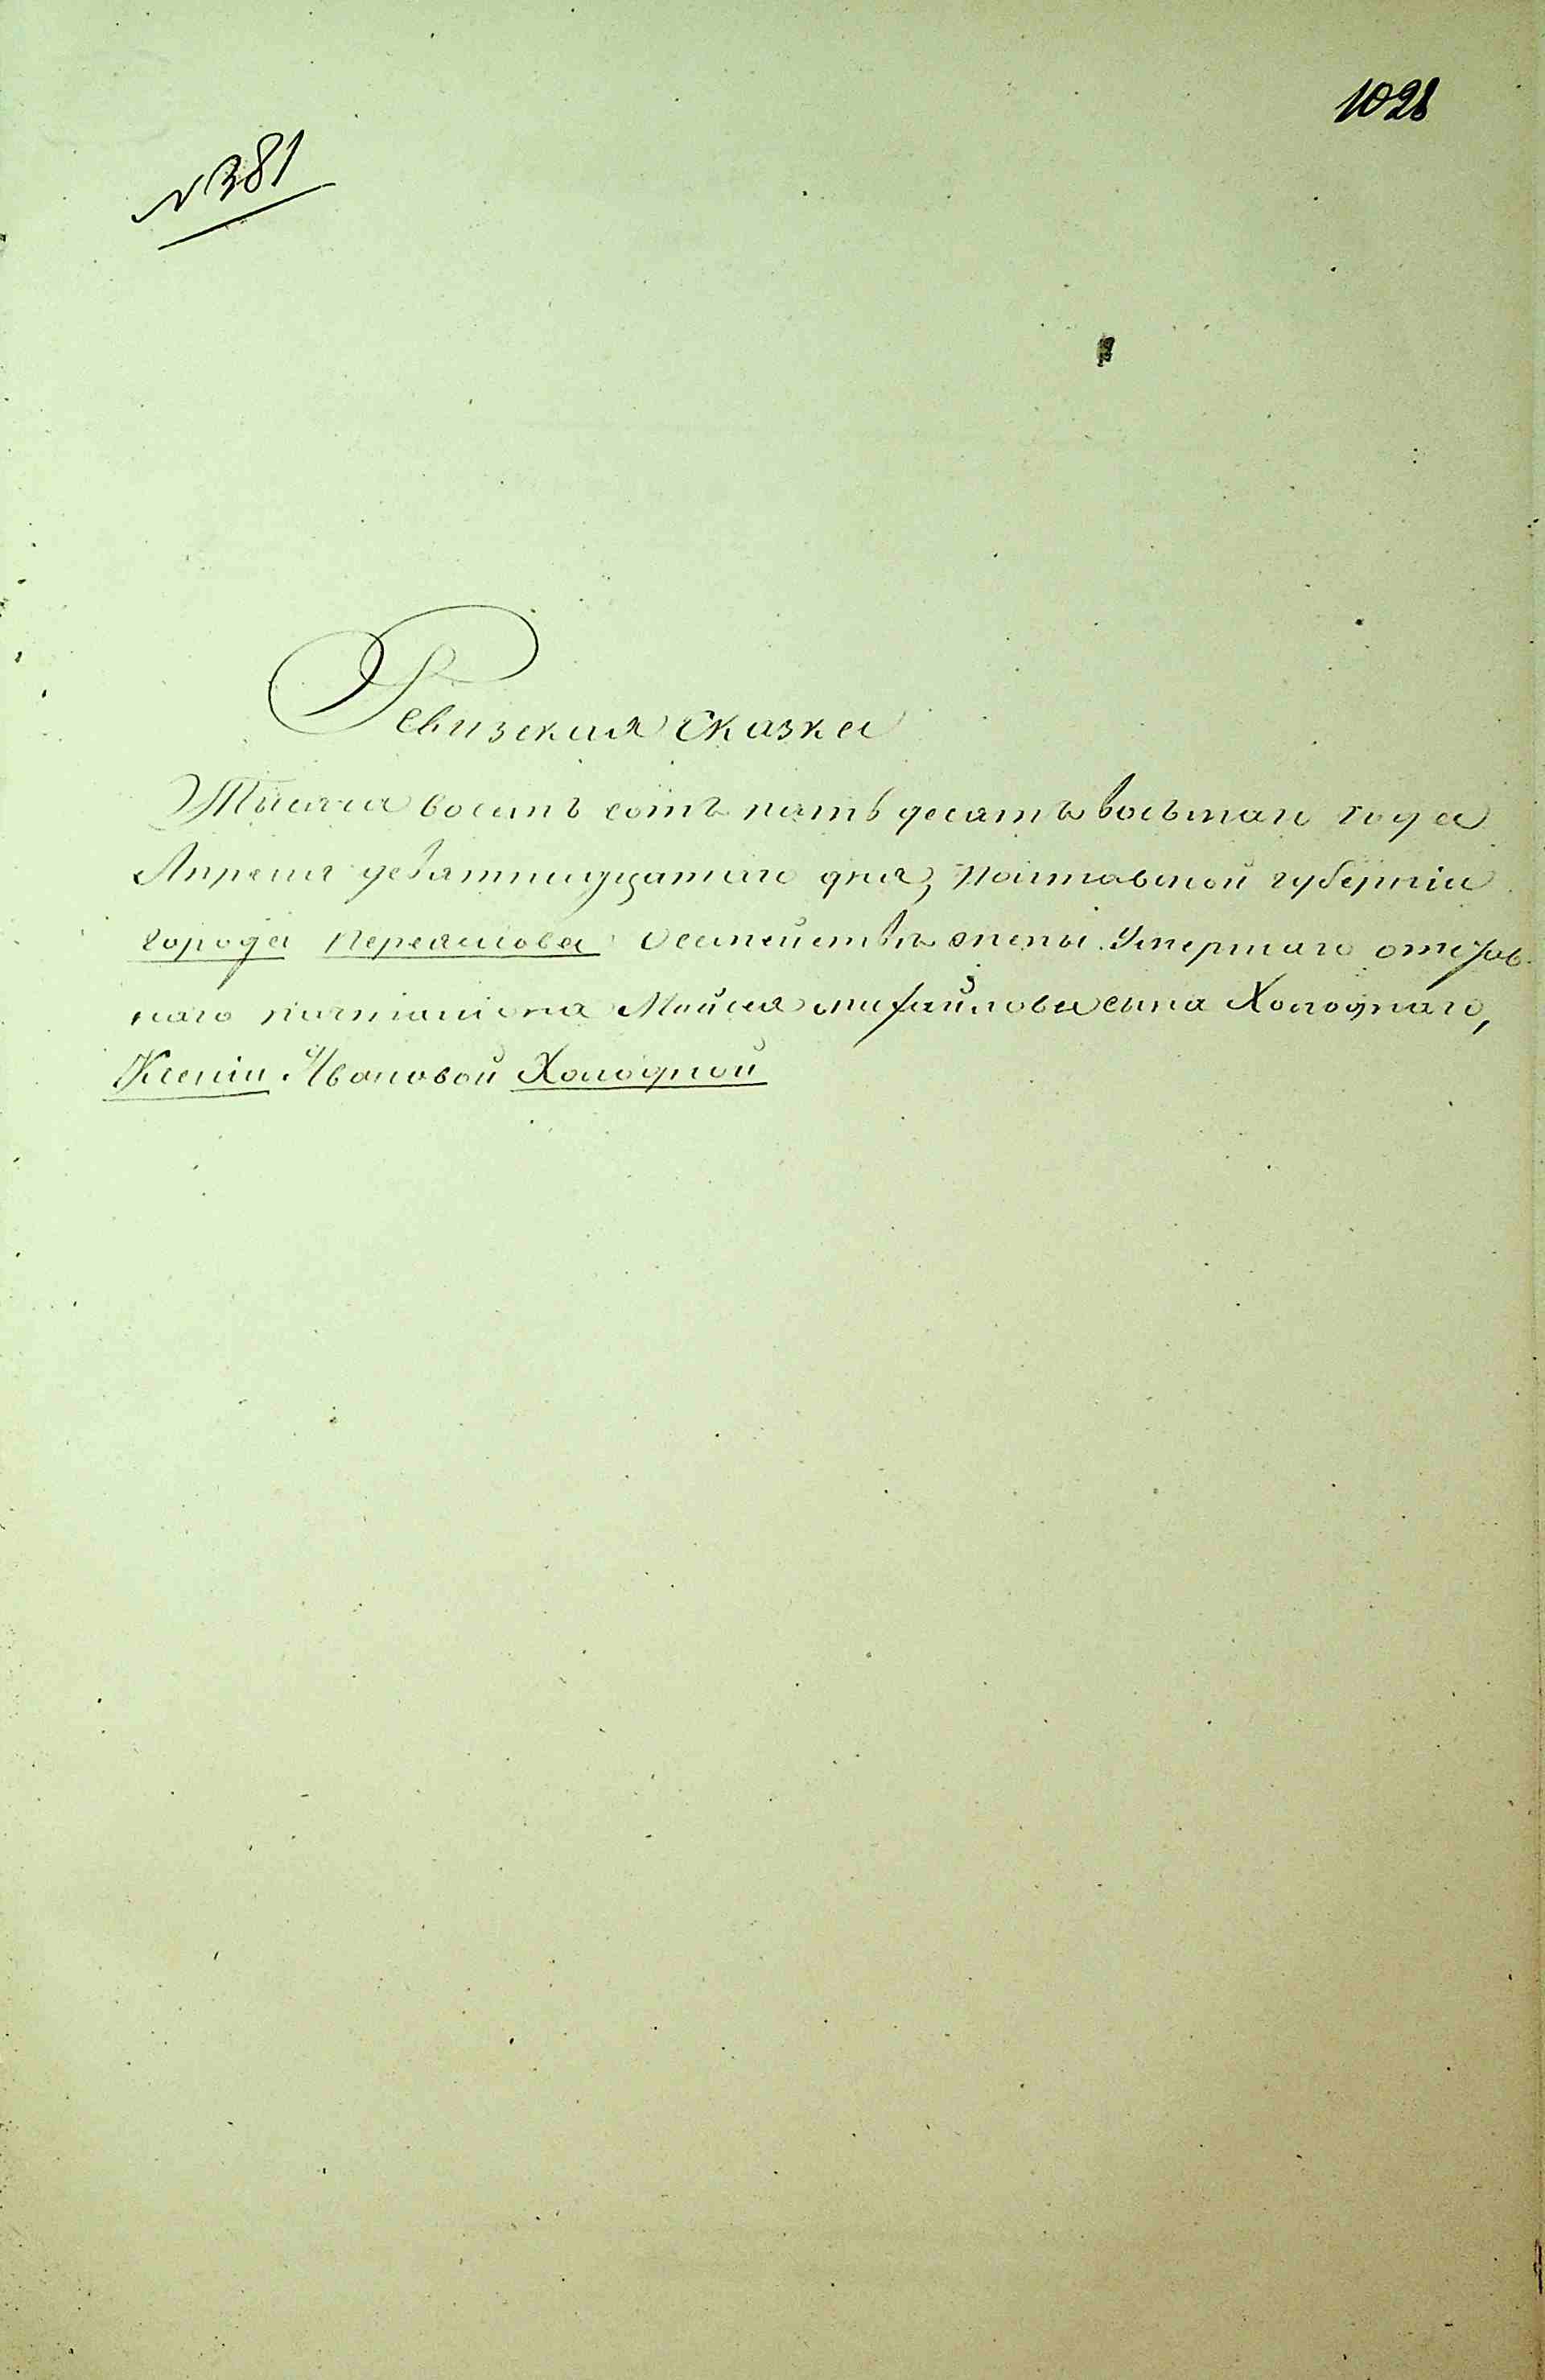 1028
№ 381
Ревизская сказка
Тысяча восемь сотъ пять десятъ восьмаго года
Апреля девятнадцатаго дня, Полтавской губерніи
города Переяслова О семействѣ жены Умершаго отстав-
наго Мойсея Михайлова сына Холоднаго,
Ксеніи Ивановой Холодной